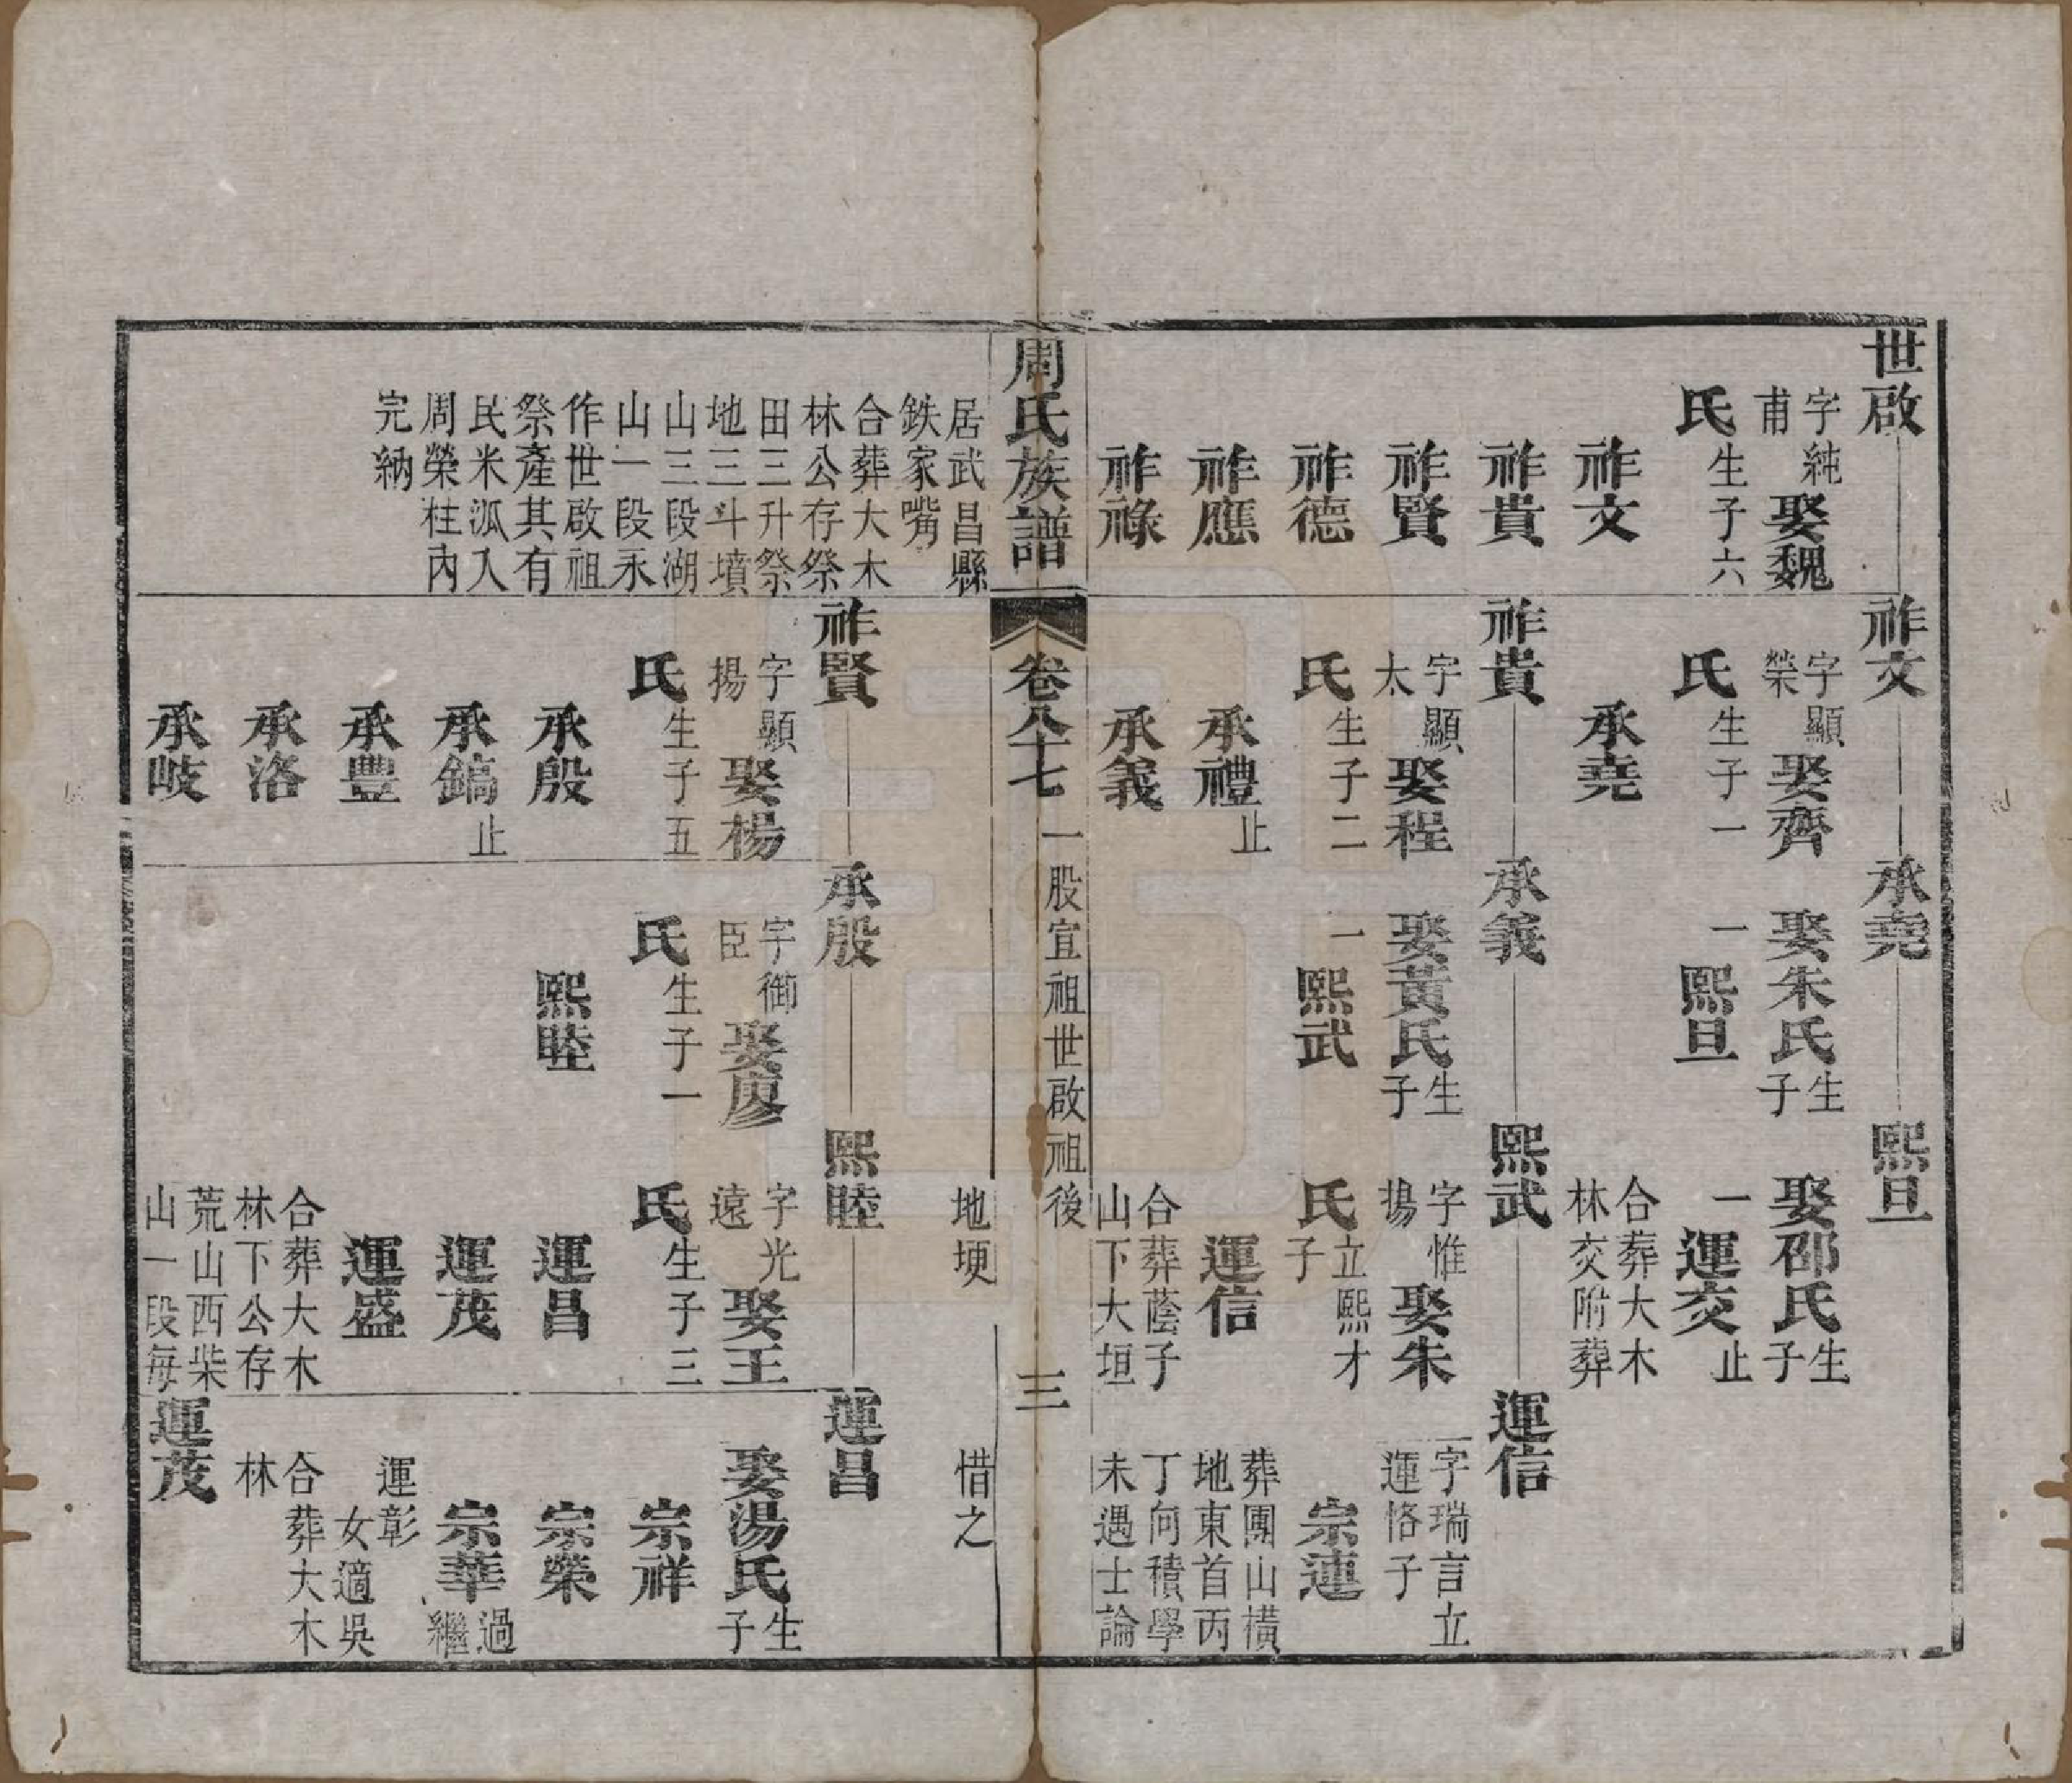 世啟
字純
甫
娶魏
氏生子六
祚文
祚貴
祚賢
祚德
祚應
祚祿
祚文
字顯
榮
娶齊
氏生子一
承堯
祚貴
字顯
太
娶程
氏生子二
承禮止
承義
承堯
娶朱氏生子
一熙旦
承義
娶黃氏生子
一熙武
熙旦
娶邵氏生子
一運交止
合葬大木
林交附葬
熙武
字惟
揚
娶朱
氏立熙才
子
運信
合葬蔭子
山下大垣
運信
字瑞言立
運恪子
宗連
葬團山橫
地東首丙
丁向積學
未遇士論
周氏族譜
卷八十七
一股宜祖世啟祖後
三
居武昌縣
鉄家嘴
合葬大木
林公存祭
田三升祭
地三斗墳
山三段湖
山一段永
作世啟祖
祭產其有
民米泒入
周榮柱內
完納
祚賢
字顯
揚
娶楊
氏生子五
承殷
承鎬止
承豐
承洛
承岐
承殷
字御
臣
娶廖
氏生子一
熙睦
地埂
熙睦
字光
遠
娶王
氏生子三
運昌
運茂
運盛
合葬大木
林下公存
荒山西柴
山一段每
惜之
運昌
娶湯氏生子
宗祥
宗榮
宗華過繼
運彰
女適吳
合葬大木
林
運茂